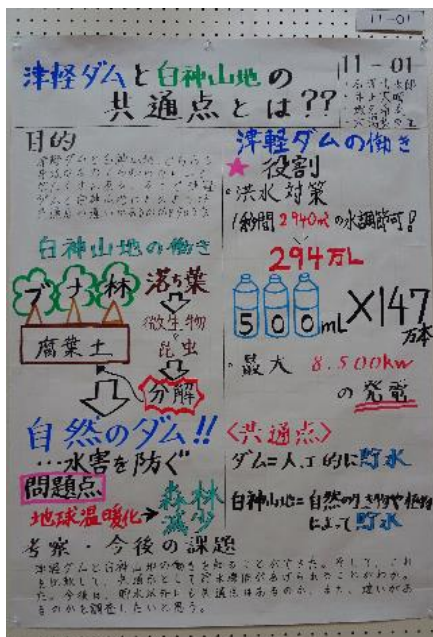 11-01
11-01
津軽ダムと白神山地の
共通点とは??
目的
白神山地の働き
ブナ林
落ち葉
微生物
昆虫
腐葉土
分解
自然のダム!!
…水害を防ぐ
問題点
地球温暖化→森林
減少
津軽ダムの働き
★役割
・洪水対策
1秒間2940㎥の水調節可!
294万L
500mL×147
万本
・最大 8.500kw
の発電
〈共通点〉
ダム=人工的に貯水
白神山地=自然の生き物や植物
によって貯水
考察・今後の課題
津軽ダムと白神山地の働きを知ることができた。そして、これ
を比較して、共通点として貯水機能があげられることがわかっ
た。今後は、貯水以外にも共通点はあるのか、また、違いがあ
るのかを調査したいと思う。